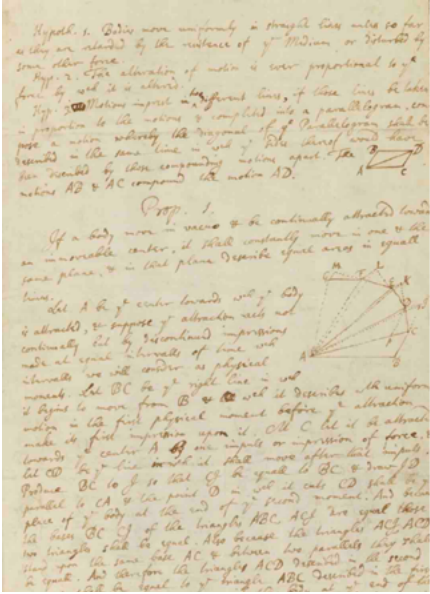 Hypoth. 1. Bodies move uniformly in straight lines unless so far
as they are retarded by the resistence of yᵉ Medium or disturbed by
some other force.
Hyp. 2. The alteration of motion is ever proportional to yᵉ
force by wch it is altered.
Hyp. 3. Motions imprest in two different lines, if those lines be taken
in proportion to the motions & completed into a parallelogram, com
pose a motion whereby the diagonal of yᵉ Parallelogram shall be
described in the same time in wch yᵉ sides thereof would have
been described by those compounding motions apart. The
motions AB & AC compound the motion AD.
B D
A C
Prop. 1.
If a body move in vacuo & be continually attracted toward
an immoveable center, it shall constantly move in one & the
same plane, & in that plane describe equal areas in equall
times.
Let A be yᵉ center towards wch yᵉ body
is attracted, & suppose yᵉ attraction acts not
continually but by discontinued impressions
made at equal intervalls of time wch
intervalls we will consider as physical
moments. Let BC be yᵉ right line in wch
it begins to move from B & wch it describes wth uniform
motion in the first physical moment before yᵉ attraction
make its first impression upon it. At C let it be attracted
towards yᵉ center A by one impuls or impression of force, &
let CD be yᵉ line in wch it shall move after that impuls.
Produce BC to I so that CI be equall to BC & draw ID
parallel to CA & the point D in wch it cuts CD shall be yᵉ
place of yᵉ body at the end of yᵉ second moment. And because
the bases BC CI of the triangles ABC, ACI are equal those
two triangles shall be equal. Also because the triangles ACI, ACD
stand upon the same base AC & between two parallels they shall
be equall. And therefore the triangle ACD described in the second
shall be equal to yᵉ triangle ABC described in the first
body at yᵉ end of